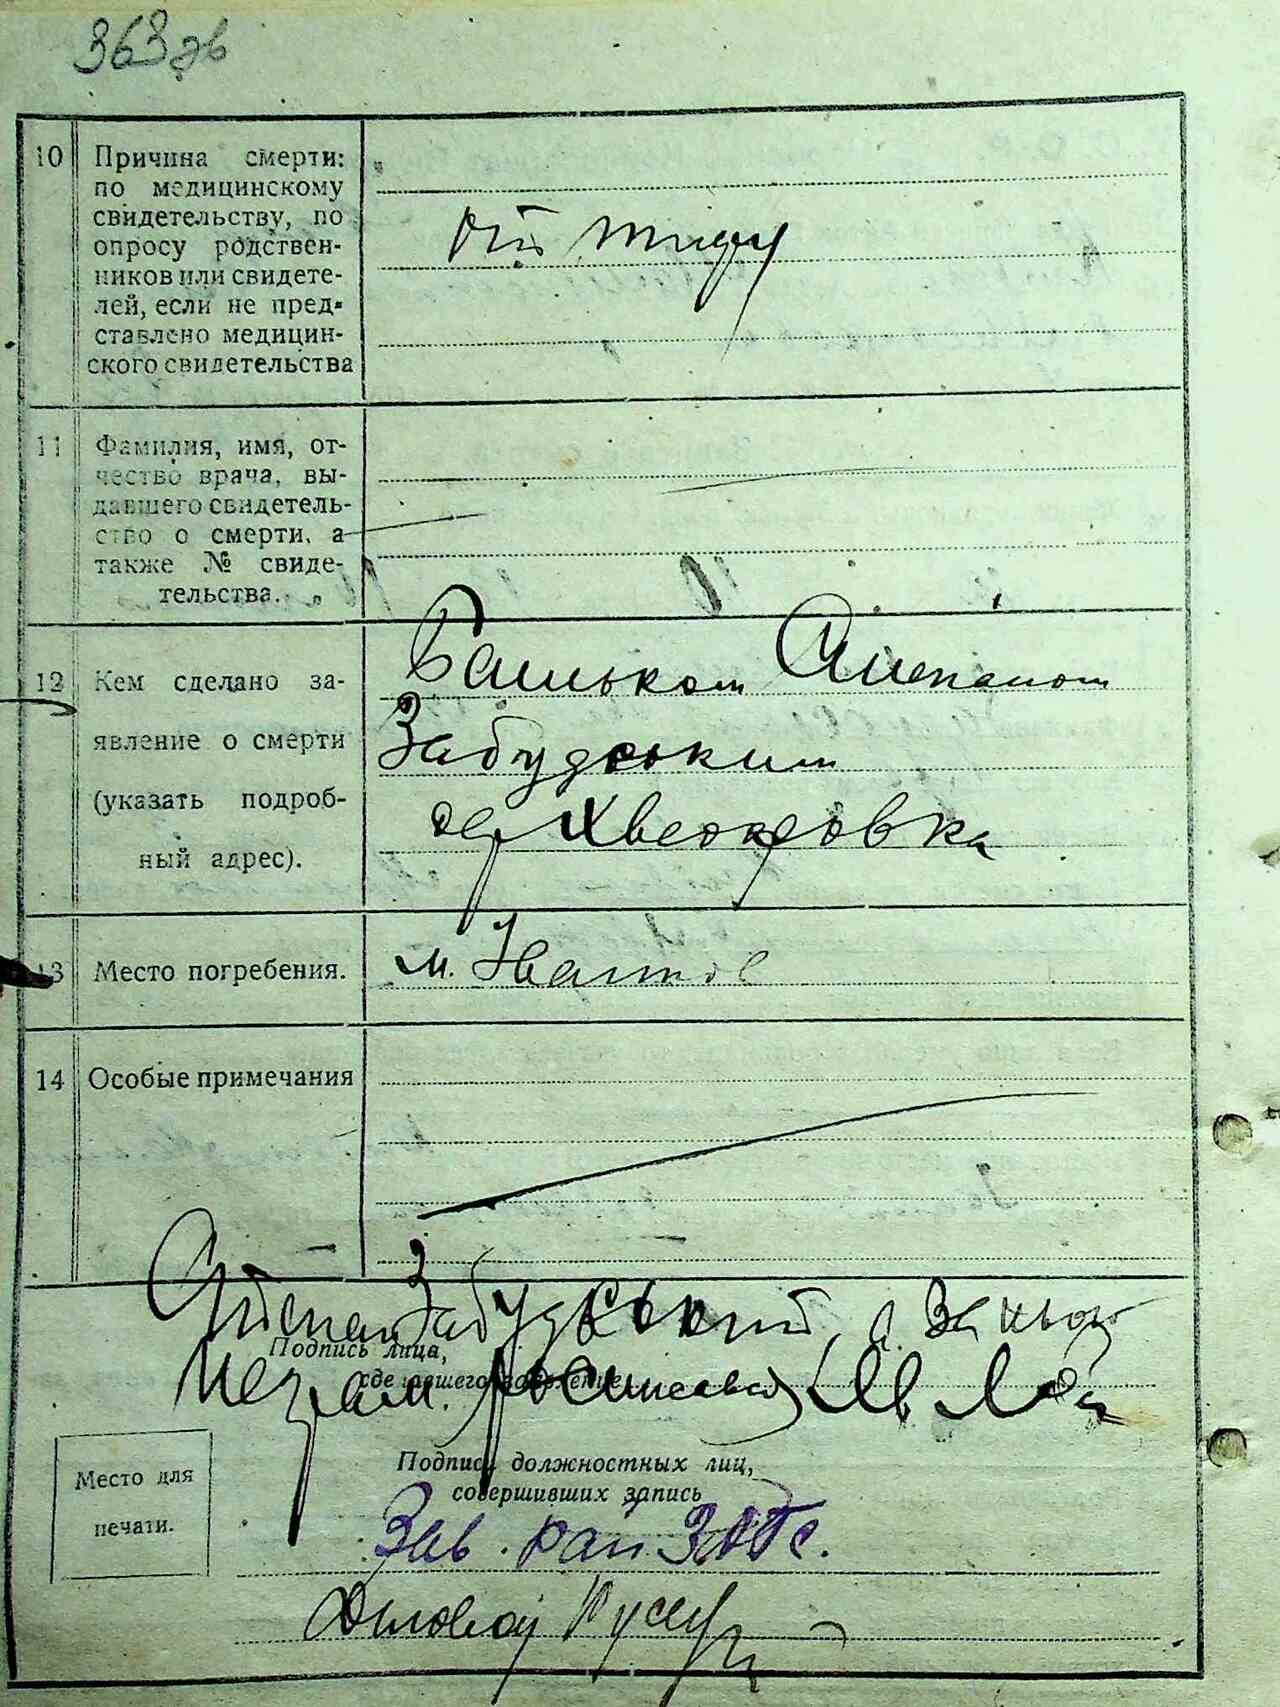 363 зв
10 Причина смерти:
по медицинскому
свидетельству, по
опросу родствен-
ников или свидете-
лей, если не пред-
ставлено медицин-
ского свидетельства
Від тифу
11 Фамилия, имя, от-
чество врача, вы-
давшего свидетель-
ство о смерти, а
также № свиде-
тельства.
12 Кем сделано за-
явление о смерти
(указать подроб-
ный адрес).
Батьком Степаном
Забудським
13 Место погребения.
м.
14 Особые примечания
Степан Забудський, а
Подпись лица,
сделавшего заявление
Подпись должностных лиц,
совершивших запись
Место для
печати.
Зав. рай ЗАГС.